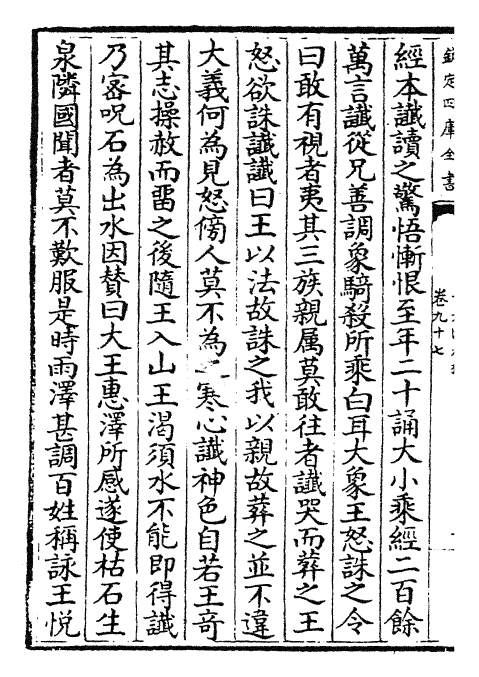 欽定四庫全書
卷九十七
經本讖讀之驚悟慚恨至年二十誦大小乘經二百餘
萬言讖從兄善調象騎殺所乘白耳大象王怒誅之令
曰敢有視者夷其三族親属莫敢往者讖哭而葬之王
怒欲誅讖讖曰王以法故誅之我以親故葬之並不違
大義何為見怒傍人莫不為之寒心讖神色自若王竒
其志操赦而畱之後隨王入山王渴須水不能即得讖
乃宻呪石為出水因賛曰大王惠澤所感遂使枯石生
泉隣國聞者莫不歎服是時雨澤甚調百姓稱詠王悦